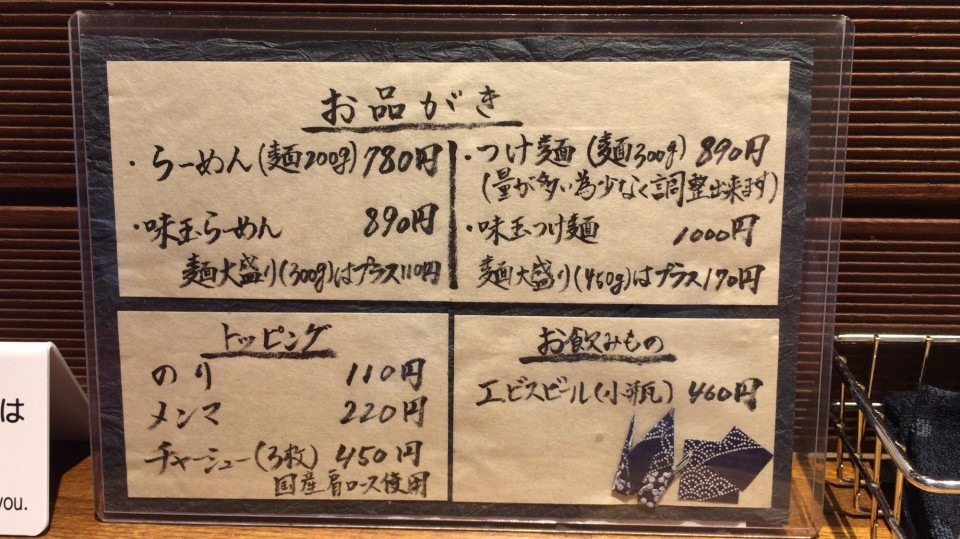 お品がき
・らーめん(麺200g) 780円
・味玉らーめん 890円
麺大盛り(300g)はプラス110円
・つけ麺 (麺300g) 890円
(量が多い為少なく調整出来ます)
・味玉つけ麺 1000円
麺大盛り(450g)はプラス170円
トッピング
のり 110円
メンマ 220円
チャーシュー(3枚) 450円
国産肩ロース使用
お飲みもの
エビスビール(小瓶) 460円
は
you.